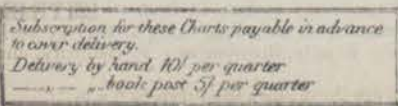 Subscription for these Charts payable in advance
to cover delivery.
Delivery by hand 10/ per quarter
———„— „ book post 5/ per quarter